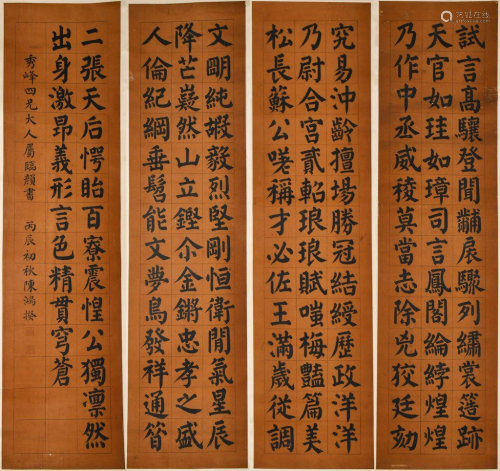 試言髙驤登聞黼扆驟列繡裳簉跡
天官如珪如璋司言鳳閣綸綍煌煌
乃作中丞威稜莫當志除兇狡廷劾
究易沖齡擅場勝冠結綬歷政洋洋
乃尉合宮貳軺琅琅賦嗤梅豔篇美
松長蘇公嗟稱才必佐王滿歲從調
文明純嘏毅烈堅剛恒衛閒氣星辰
降芒嶷然山立鏗尒金鏘忠孝之盛
人倫紀綱垂髫能文夢鳥發祥通
二張天后愕眙百寮震惶公獨凛然
出身激昂義形言色精貫穹蒼
秀峰四兄大人屬臨顏書 丙辰初秋陳鴻